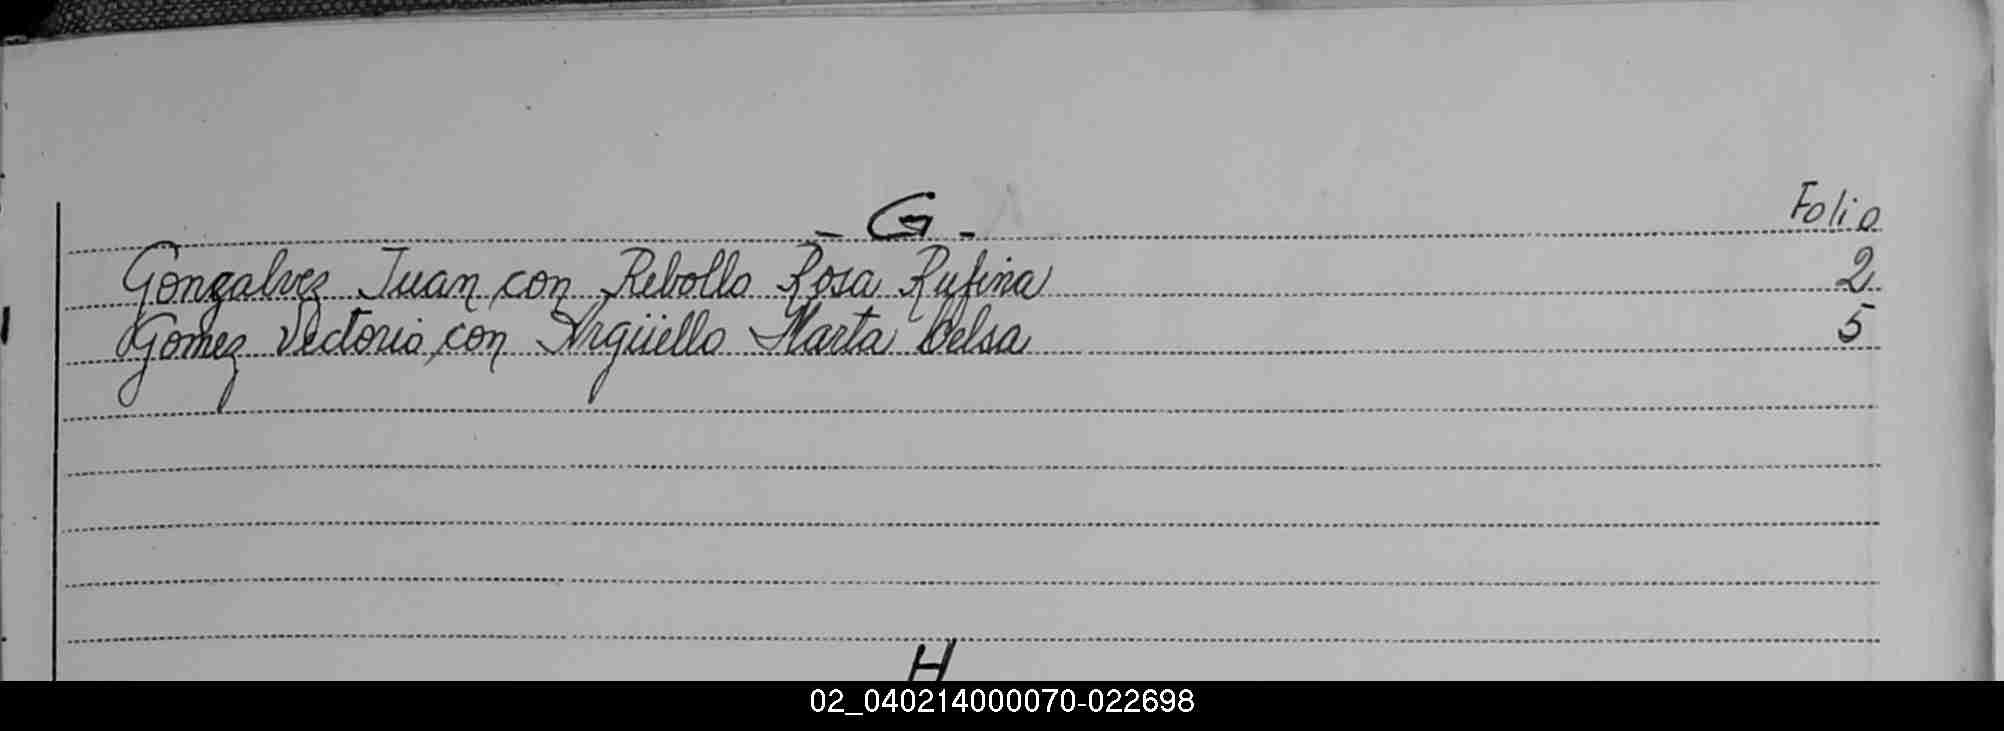 - G -
Folio
Gonzalvez Juan con Rebollo Rosa Rufina 2
Gomez Victorio con Argüello Marta Celsa 5
H
02_040214000070-022698